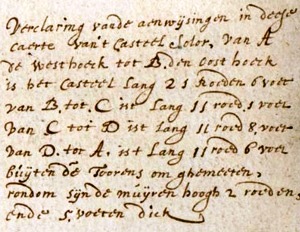 Verclaring vande aenwijsingen in deese
caerte van't Casteel Lolor, van A
de westhoeck tot B. den oost hoeck
is het Casteel Lang 21 Roeden 6 voet
van B tot C is Lang 11 roed 1 voet
van C tot D ist Lang 11 roed 8 voet
van D. tot A. ist Lang 11 roed 6 voet
buÿten de Toorens om ghemeeten,
rondom sijnde muÿren hoogh 2 roeden,
ende 5 voeten dick